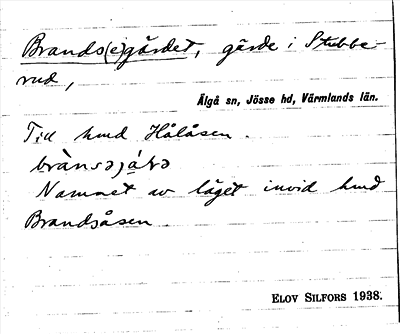 Brands(e)gärdet, gärde i Stubbe-
rud,
Älgå sn, Jösse hd, Värmlands län.
Till hmd Hålåsen.
Namnet av läget invid hmd
Brandsåsen
ELOV SILFORS 1938.